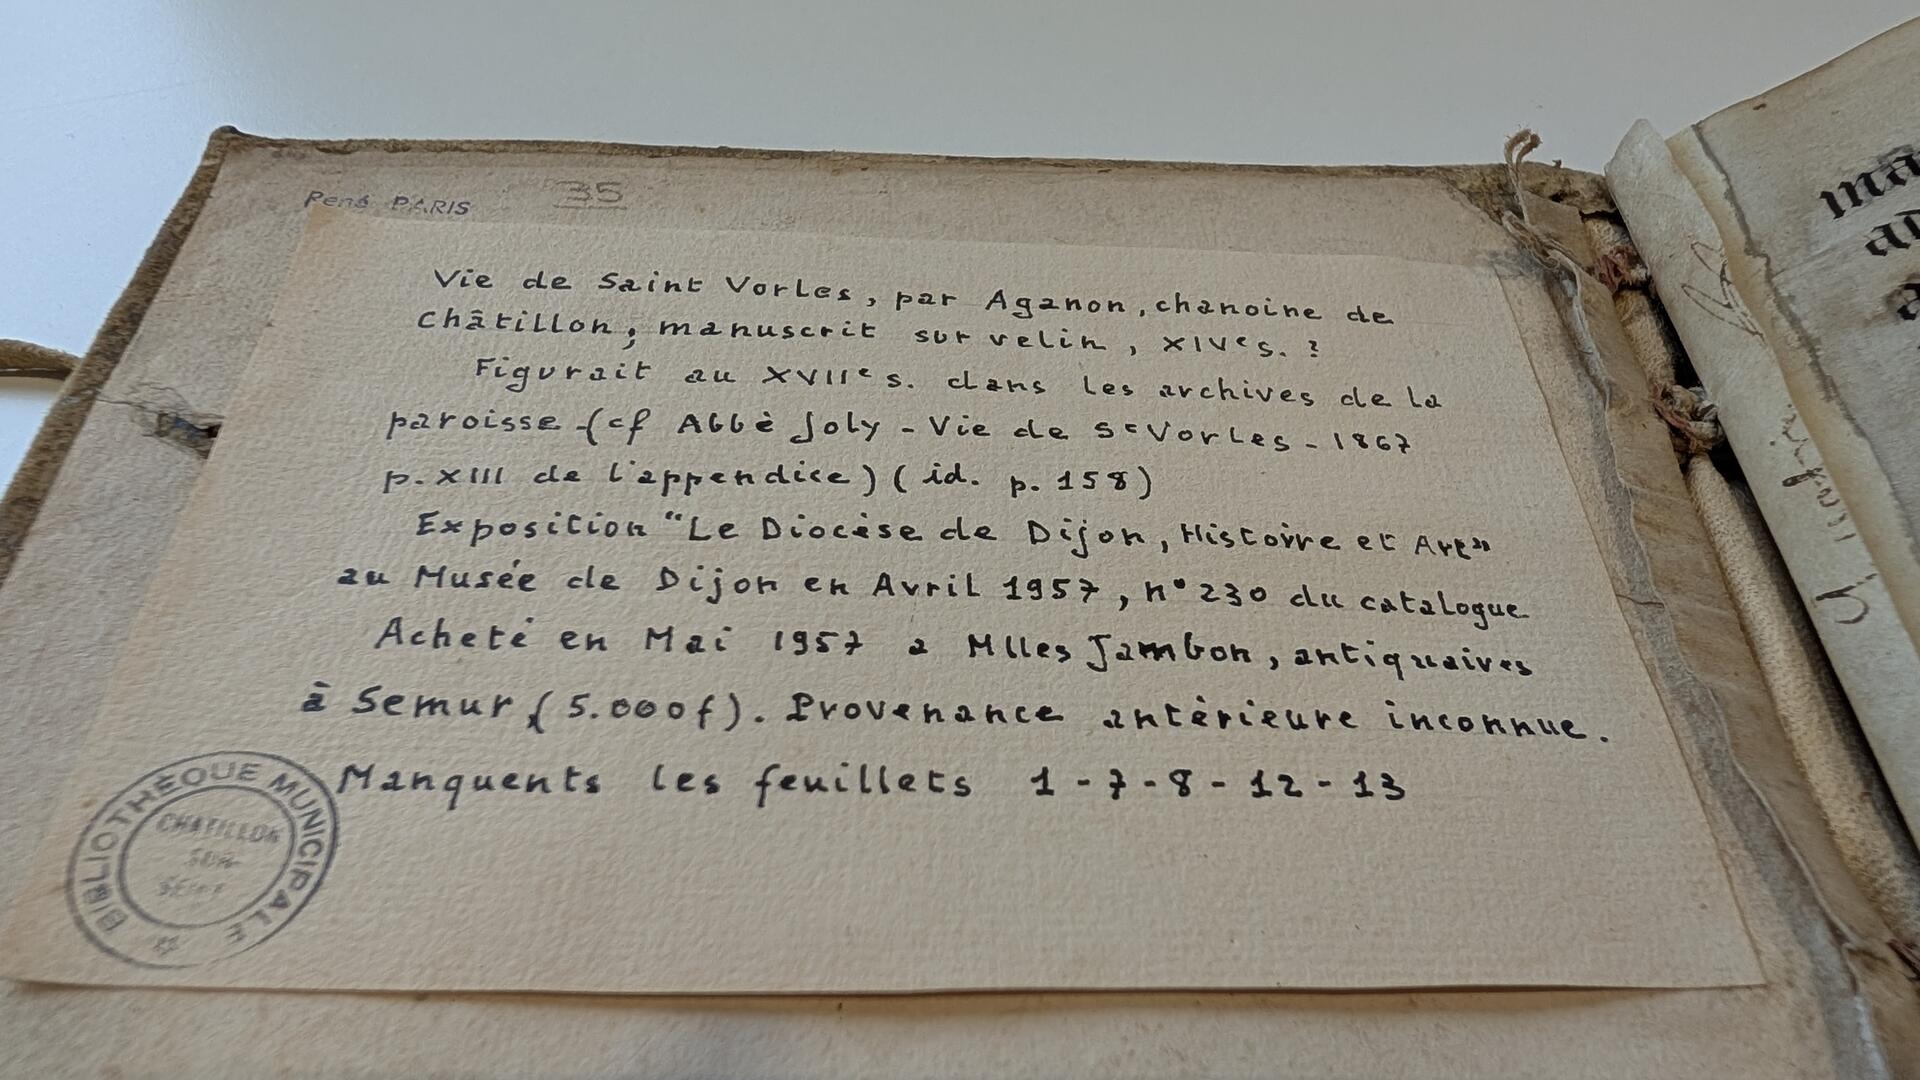 René PARIS 35
Vie de Saint Vorles, par Aganon, chanoine de
Châtillon; manuscrit sur velin, XIVe s. ?
Figurait au XVIIe s. dans les archives de la
paroisse (cf Abbé Joly - Vie de St Vorles - 1867
p. XIII de l'appendice) (id. p. 158)
Exposition "Le Diocèse de Dijon, Histoire et Art"
au Musée de Dijon en Avril 1957, n° 230 du catalogue
Acheté en Mai 1957 a Mlles Jambon, antiquaires
à Semur (5.000f). Provenance antérieure inconnue.
Manquents les feuillets 1 - 7 - 8 - 12 - 13
BIBLIOTHÈQUE MUNICIPALE
CHATILLON
SUR
SEINE
ma